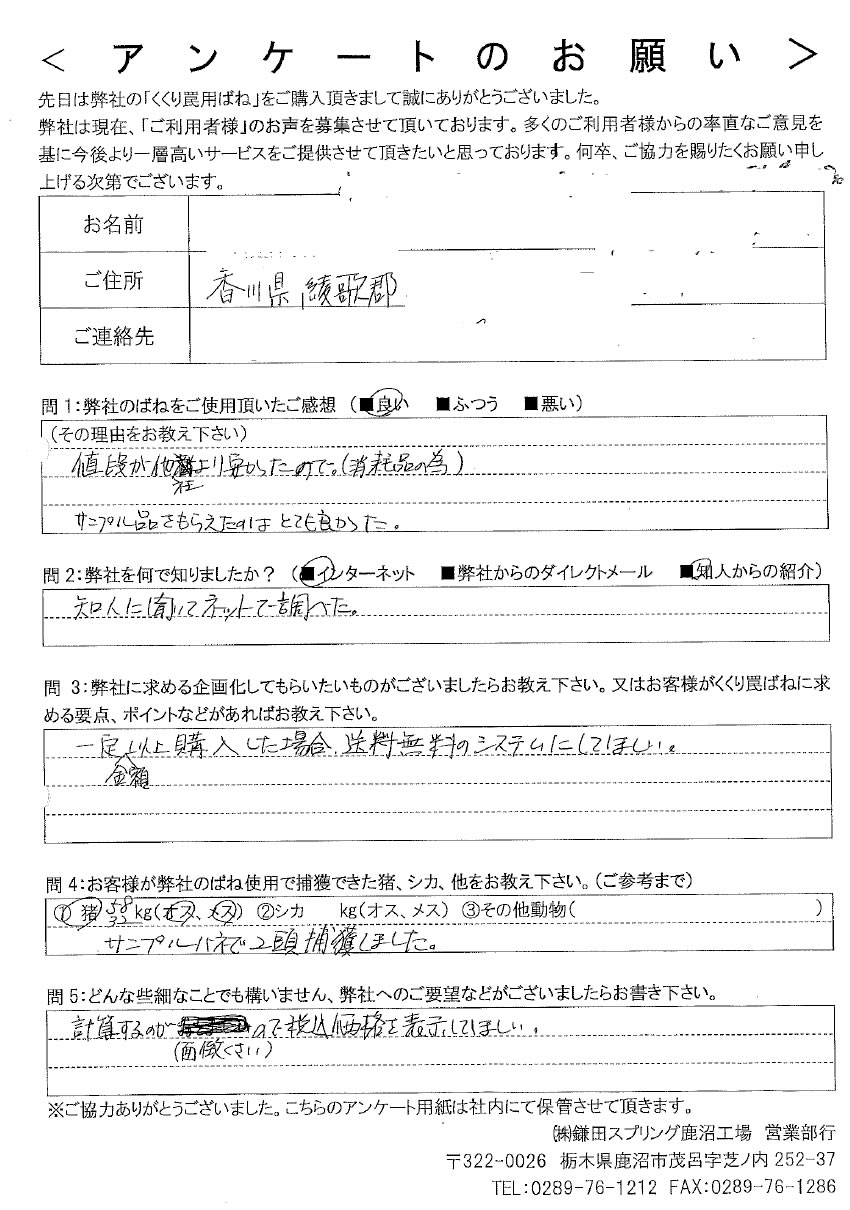 ＜アンケートのお願い＞
先日は弊社の「くくり罠用ばね」をご購入頂きまして誠にありがとうございました。
弊社は現在、「ご利用者様」のお声を募集させて頂いております。多くのご利用者様からの率直なご意見を
基に今後より一層高いサービスをご提供させて頂きたいと思っております。何卒、ご協力を賜りたくお願い申し
上げる次第でございます。
お名前
ご住所 香川県綾歌郡
ご連絡先
問1：弊社のばねをご使用頂いたご感想 （■良い ■ふつう ■悪い）
（その理由をお教え下さい）
値段が他社より安かったので。（消耗品の為）
サンプル品をもらえたのはとても良かった。
問2：弊社を何で知りましたか？ （■インターネット ■弊社からのダイレクトメール ■知人からの紹介）
知人に聞いてネットで調べた。
問 3：弊社に求める企画化してもらいたいものがございましたらお教え下さい。又はお客様がくくり罠ばねに求
める要点、ポイントなどがあればお教え下さい。
一定金額以上購入した場合、送料無料のシステムにしてほしい。
問4：お客様が弊社のばね使用で捕獲できた猪、シカ、他をお教え下さい。（ご参考まで）
①猪 kg（オス、メス） ②シカ kg（オス、メス） ③その他動物（ ）
サンプルバネで2頭捕獲しました。
問5：どんな些細なことでも構いません、弊社へのご要望などがございましたらお書き下さい。
計算するのが（面倒くさい）ので税込価格を表示してほしい。
※ご協力ありがとうございました。こちらのアンケート用紙は社内にて保管させて頂きます。
㈱鎌田スプリング鹿沼工場 営業部行
〒322-0026 栃木県鹿沼市茂呂字芝ノ内 252-37
TEL:0289-76-1212 FAX:0289-76-1286